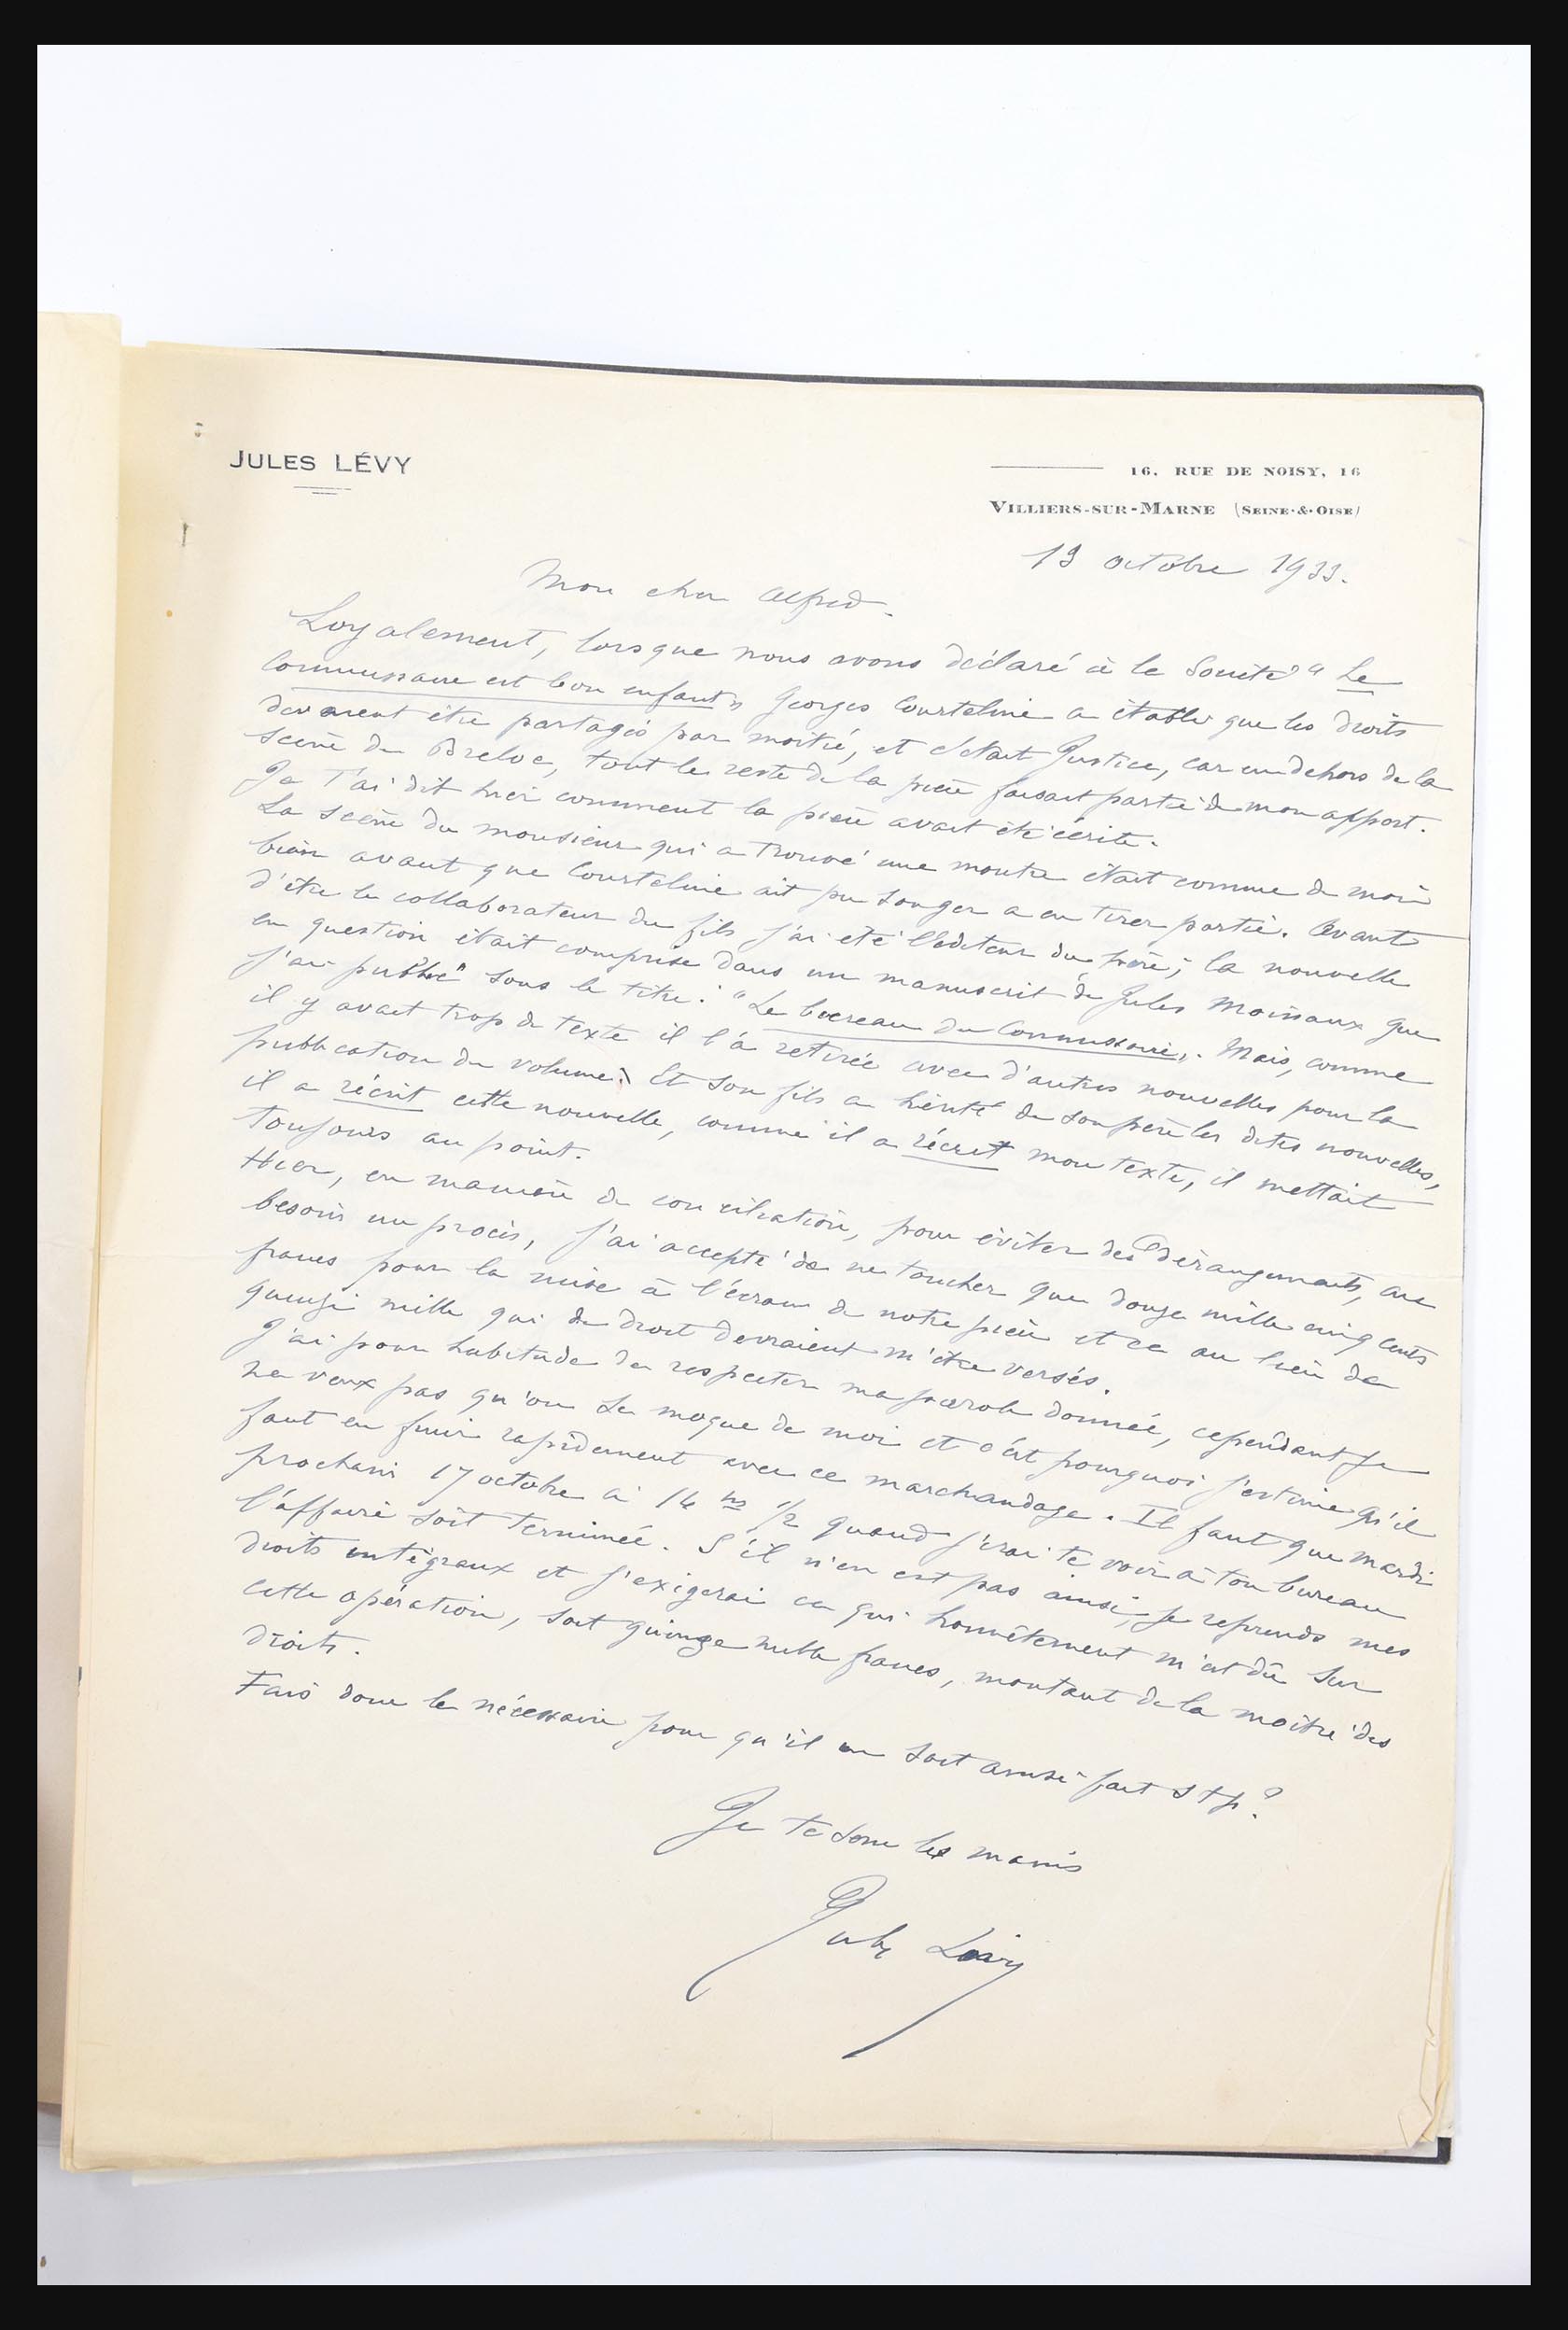 JULES LÉVY
16, RUE DE NOISY, 16
VILLIERS-SUR-MARNE (SEINE-&-OISE)
13 octobre 1933.
Mon cher Alfred.
Loyalement, lorsque nous avons déclaré à la Société "Le
Commissaire est bon enfant" Georges Courteline a établi que les droits
devaient être partagés par moitié, et c'était Justice, car en dehors de la
scène de Breloc, tout le reste de la pièce faisait partie de mon apport.
Je t'ai dit hier comment la pièce avait été écrite.
La scène du monsieur qui a trouvé une montre était connue de moi
bien avant que Courteline ait pu songer a en tirer partie. Avant
d'être le collaborateur du fils j'ai été l'éditeur du père; la nouvelle
en question était comprise dans un manuscrit de Jules Moinaux que
j'ai publié sous le titre: "Le bureau du Commissaire". Mais, comme
il y avait trop de texte il l'a retirée avec d'autres nouvelles pour la
publication du volume. Et son fils a hérité de son père les dites nouvelles,
il a récrit cette nouvelle, comme il a récrit mon texte, il mettait
toujours au point.
Hier, en manière de conciliation, pour éviter des dérangements, au
besoin un procès, j'ai accepté de ne toucher que douze mille cinq cents
francs pour la mise à l'écran de notre pièce et ce au lieu de
quinze mille qui de droit devraient m'être versés.
J'ai pour habitude de respecter ma parole donnée, cependant je
ne veux pas qu'on se moque de moi et c'est pourquoi j'estime qu'il
faut en finir rapidement avec ce marchandage. Il faut que mardi
prochain 17 octobre à 14 hs 1/2 quand j'irai te voir à ton bureau
l'affaire soit terminée. S'il n'en est pas ainsi, je reprends mes
droits intégraux et j'exigerai ce qui honnêtement m'est dû sur
cette opération, soit quinze mille francs, montant de la moitié des
droits.
Fais donc le nécessaire pour qu'il en soit ainsi fait stp?
Je te serre les mains
Jules Lévy